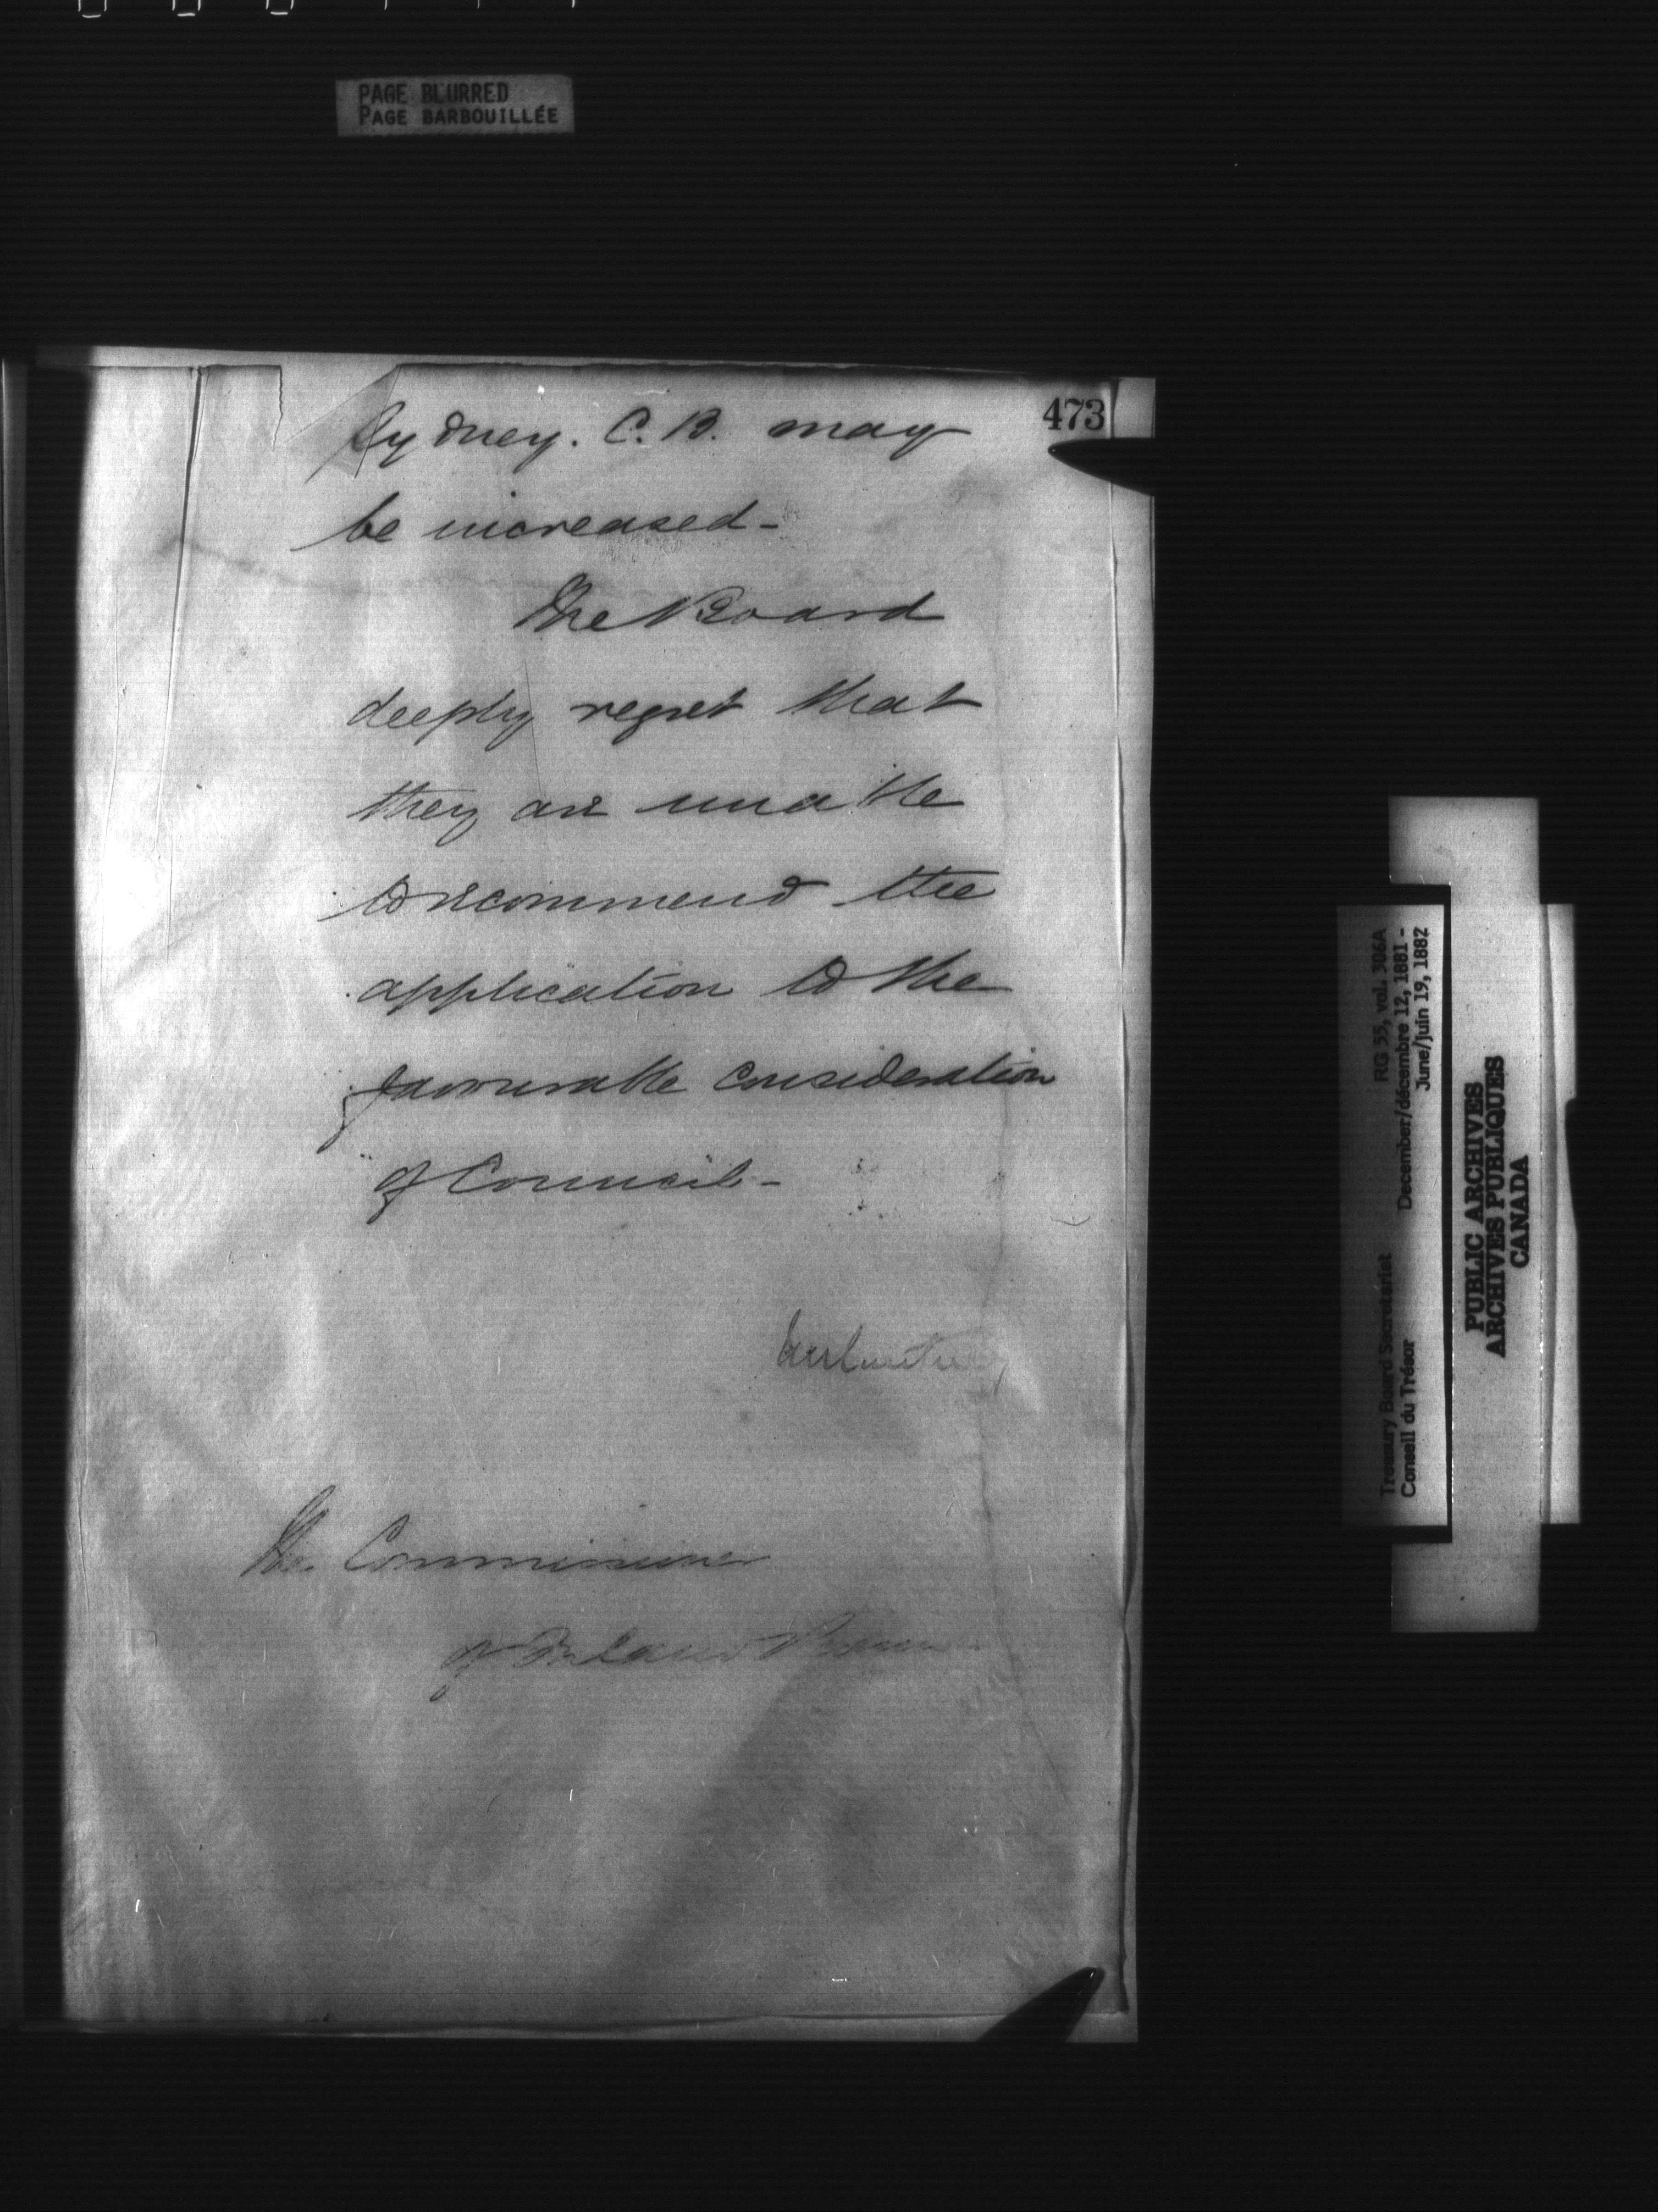 PAGE BLURRED
PAGE BARBOUILLÉE
473
Sydney. C. B. may
be increased-
The Board
deeply regret that
they are unable
to recommend the
application to the
favourable consideration
of Council-
The Commissioner
of Inland Revenue
Treasury Board Secretariat RG 55, vol. 306A
Conseil du Trésor December/décembre 12, 1881 -
June/juin 19, 1882
PUBLIC ARCHIVES
ARCHIVES PUBLIQUES
CANADA